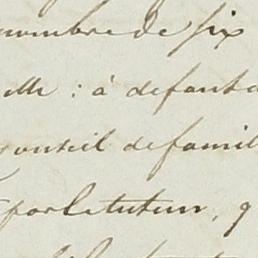 nombre de six
elle : à defaut d
conseil de famil
par le tuteur, q